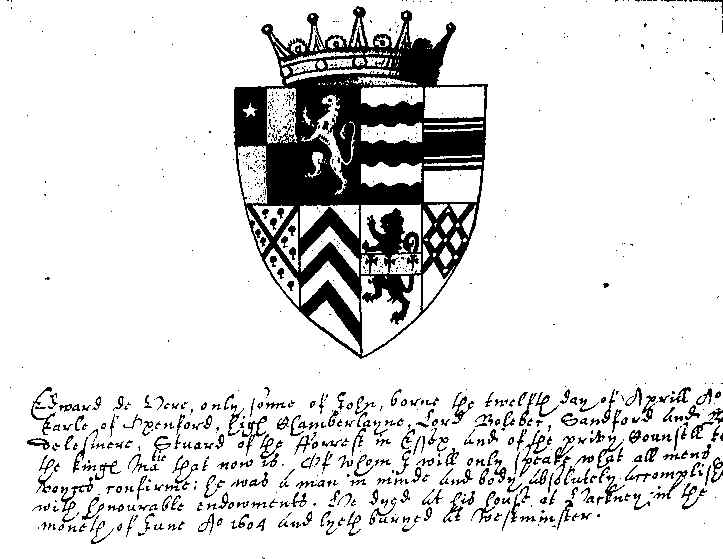 Edward de Vere, only sonne of John, borne the twelfth day of Aprill Ao
Earle of Oxenford, high Chamberlayne, Lord Bolebec, Sandford and Ba
delesmere, Stuard of the Forrest in Essex and of the privy Counsell to
the kinges Matie that now is. Of whom I will only speake what all mens
voyces confirme: he was a man in minde and body absolutely accomplish
with honourable endowments. He dyed at his house at Hackney in the
moneth of June Ao 1604 and lyeth buryed at Westminster.